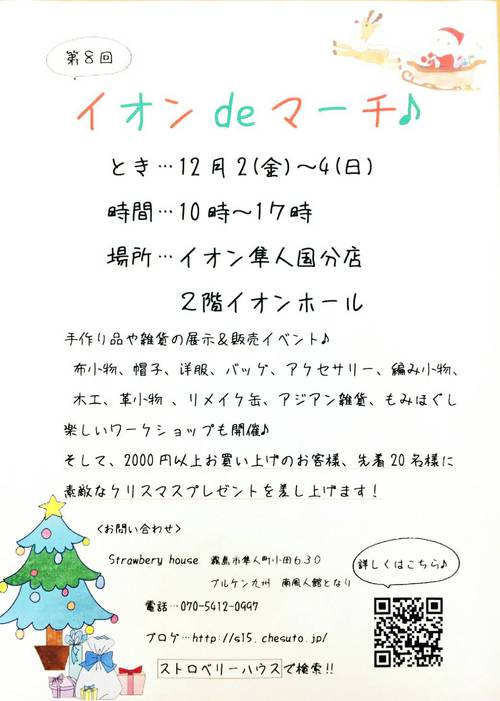 第8回
イオン de マーチ♪
とき…12月2(金)～4(日)
時間…10時～17時
場所…イオン隼人国分店
2階イオンホール
手作り品や雑貨の展示&販売イベント♪
布小物、帽子、洋服、バッグ、アクセサリー、編み小物、
木工、革小物 、リメイク缶、アジアン雑貨、もみほぐし
楽しいワークショップも開催♪
そして、2000円以上お買い上げのお客様、先着20名様に
素敵なクリスマスプレゼントを差し上げます!
<お問い合わせ>
Strawbery house 霧島市隼人町小田630
ブルケン九州 南風人館となり
詳しくはこちら♪
電話…070-5412-0997
ブログ…http://s15.chesuto.jp/
ストロベリーハウスで検索!!